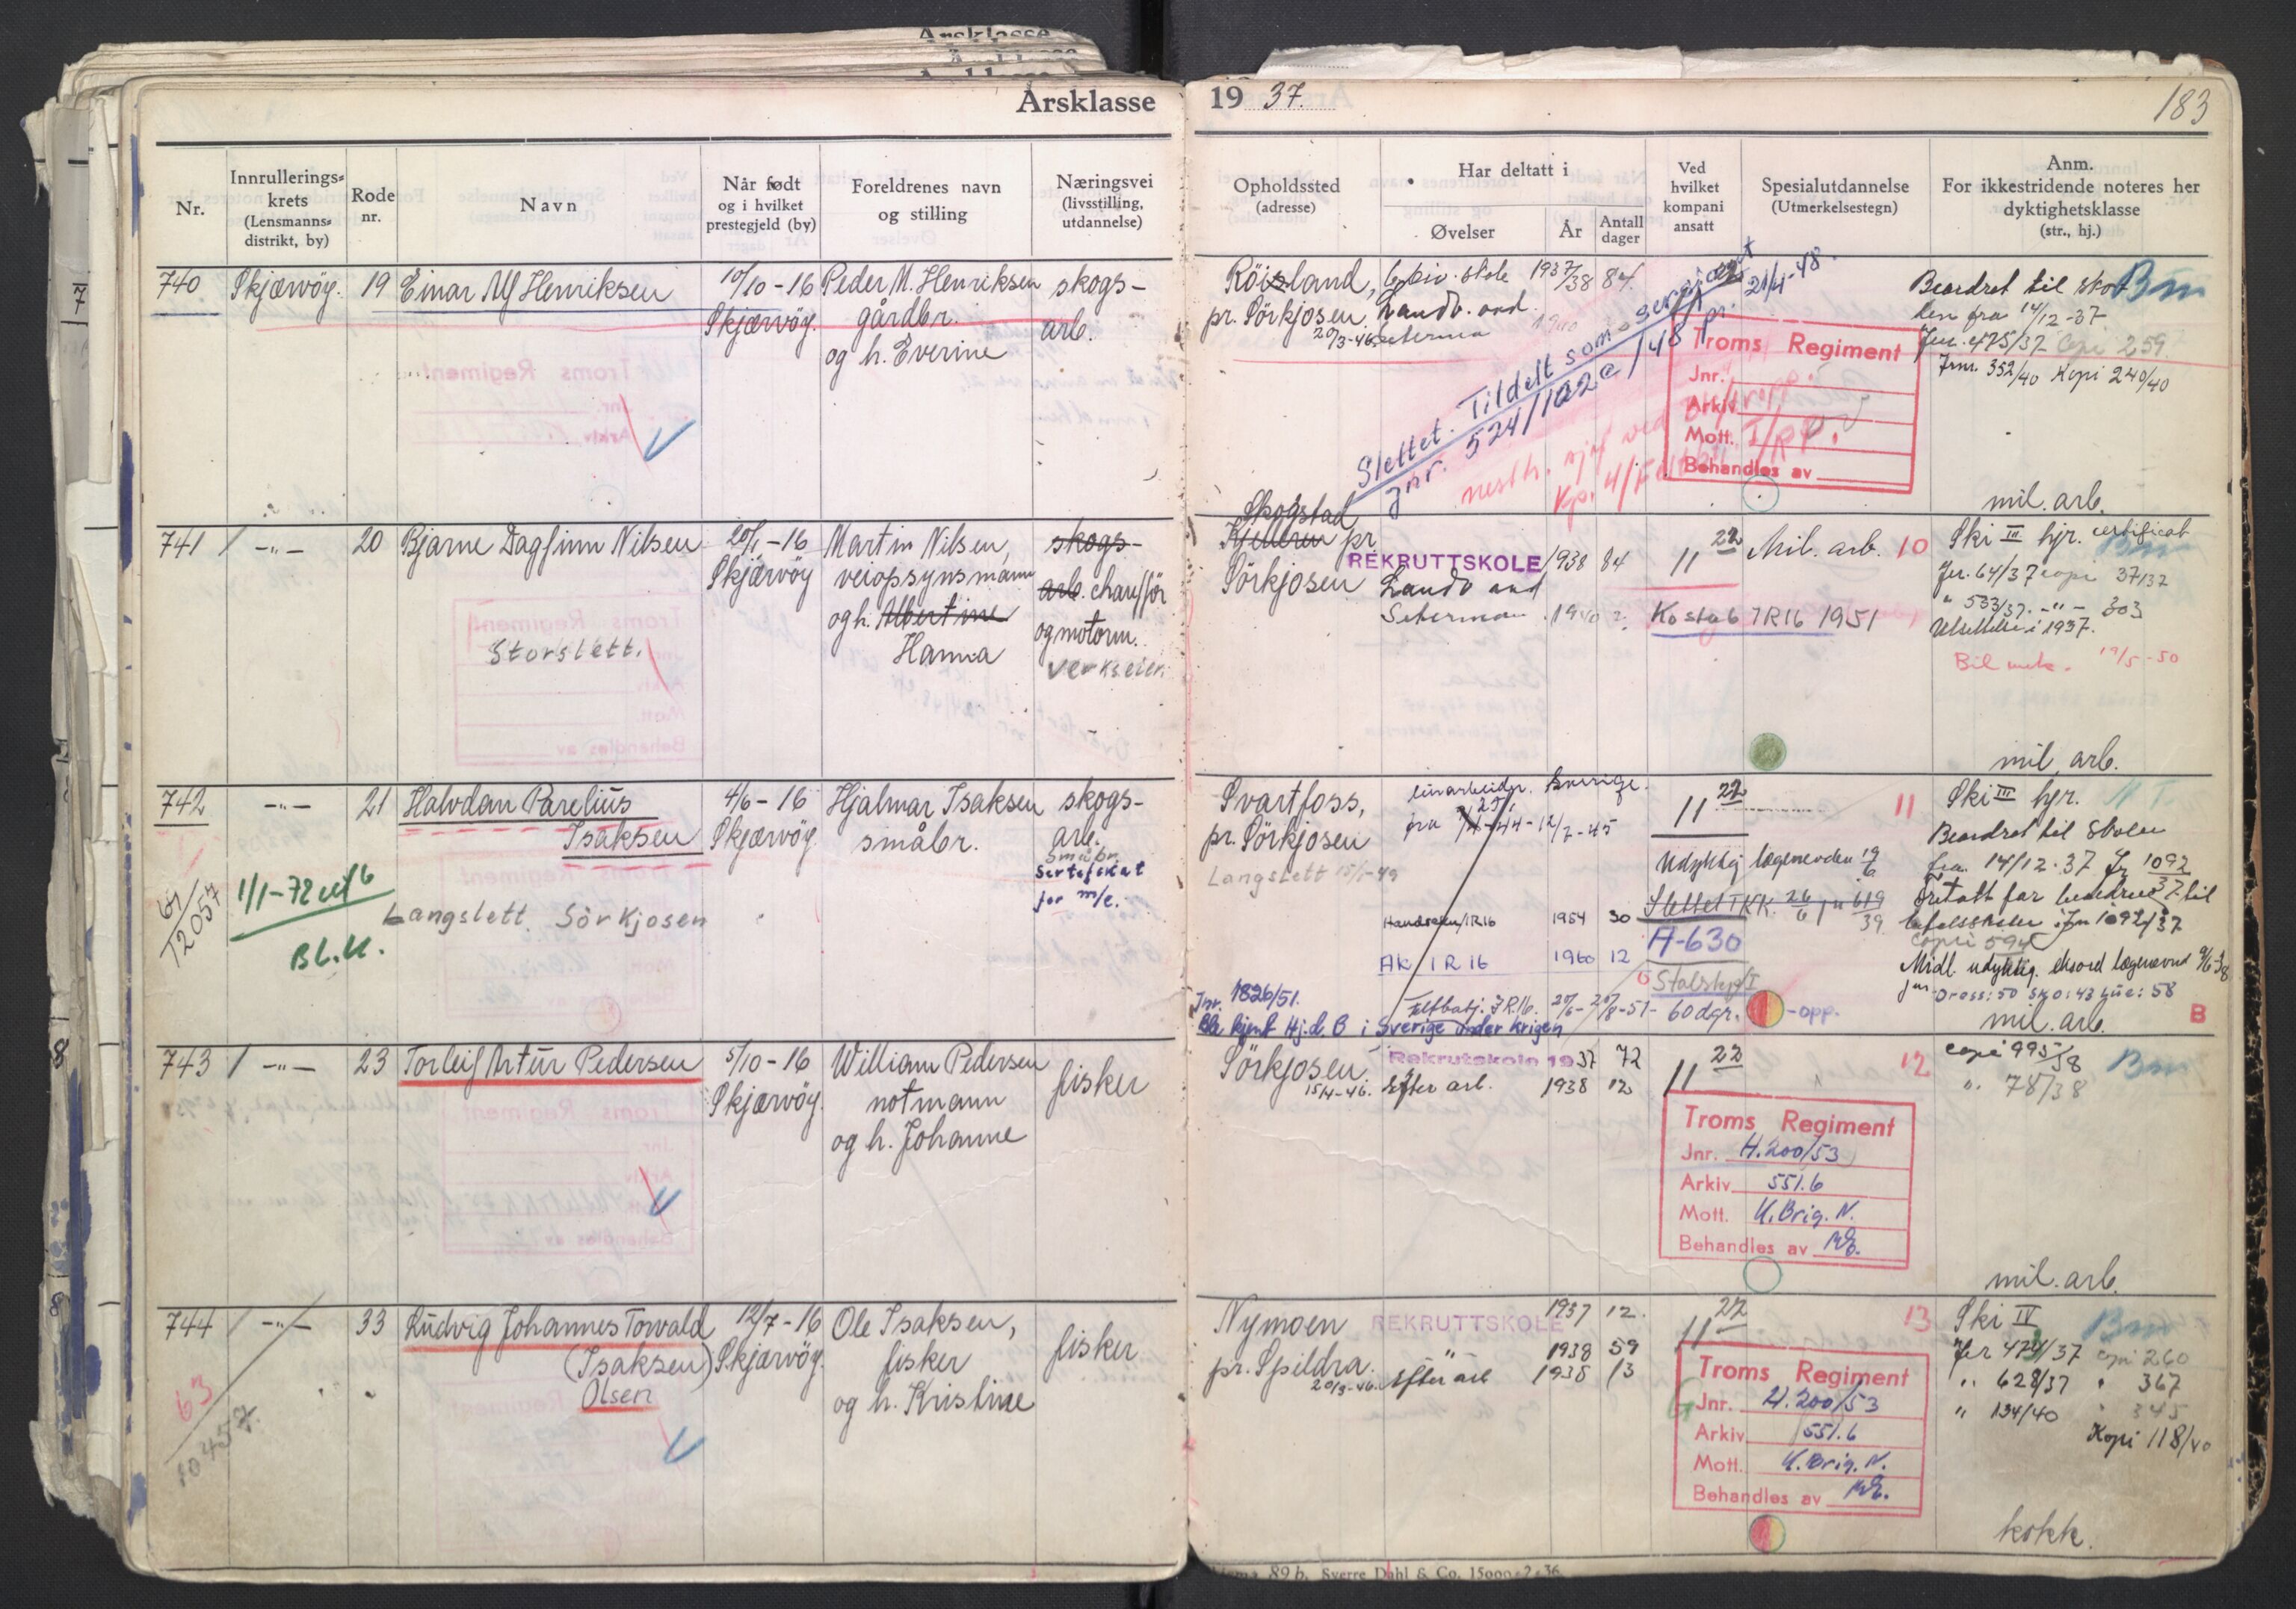 Årsklasse 1937.
183
Nr.
Innrullerings-
krets
(Lensmanns-
distrikt, by)
Rode
nr.
Navn
Når født
og i hvilket
prestegjeld (by)
Foreldrenes navn
og stilling
Næringsvei
(livsstilling,
utdannelse)
Opholdssted
(adresse)
Har deltatt i
Øvelser
År
Antall
dager
Ved
hvilket
kompani
ansatt
Spesialutdannelse
(Utmerkelsestegn)
Anm.
For ikkestridende noteres her
dyktighetsklasse
(str., hj.)
740 Skjærvöy. 19 Einar Alf Henriksen
10/10-16
Skjærvöy.
Peder M. Henriksen
gårdbr.
og h. Everine
skogs-
arb.
Röisland,
pr. Sörkjosen
20/3-46
skole 1937/38 84
Landv. and.
Seterma 1940
Slettet. Tildelt som sergiant
Jnr. 524/102a/48
21/1-48.
Troms Regiment
Jnr.
Arkiv
Mott.
Behandles av
Beordret til sko
len fra 14/12-37
Jnr. 475/37 Copi 259
Jnr. 352/40 Kopi 240/40
mil. arb.
741 -"- 20 Bjarne Dagfinn Nilsen
Storslett.
20/1-16
Skjærvöy
Martin Nilsen,
veiopsynsmann
og h. Albertine
Hanna
skogs-
arb. chaufför
og motorm.
verkseier.
Skogstad
pr
Sörkjosen
REKRUTTSKOLE 1938 84
Landv and
Seterman 1940
11 22
Mil. arb. 10
Ko stab IR16 1951
Ski III hjr. certificat
Jnr. 64/37 copi 37/37
" 533/37. -"- 303
Utsettelse i 1937.
Bil mek. 19/5-50
mil. arb.
742 -"- 21 Halvdan Parelius
Isaksen
Langslett Sörkjosen
1/1-72
BL.K.
67/12057
4/6-16
Skjærvöy.
Hjalmar Isaksen
småbr.
skogs-
arb.
Småbr.
Sertifikat
for m/c.
Svartfoss,
pr. Sörkjosen
Langslett 15/1-49
Sverige.
fra 12/7-45
IR16 1954 30
AK IR 16 1960 12
Jnr. 1826/51.
Feltbatj. IR16.
60 dgr.
-opp.
i Sverige under krigen
11 22
11
Udyktig lægenevden
A-630
Ski III hjr.
Beordret til skolen
fra 14/12-37 Jr 1092/37
Jnr 1092/37
copi 594
Dress: 50 sko: 43 lue: 58
mil. arb.
B
743 -"- 23 Torleif Artur Pedersen
5/10-16
Skjærvöy.
William Pedersen
notmann
og h. Johanne
fisker
Sörkjosen
15/4-46.
Rekrutskole 1937 72
Efter arb. 1938 12
11 22
12
Troms Regiment
Jnr. H.200/53
Arkiv 551.6
Mott. K.Brig.N.
Behandles av
copi 995/38
" 78/38
mil. arb.
744 -"- 33 Ludvig Johannes Torvald
(Isaksen)
Olsen
63
10457
12/7-16
Skjærvöy.
Ole Isaksen,
fisker
og h. Kristine
fisker
Nymoen
pr. Spildra.
20/3-46.
REKRUTTSKOLE 1937 12.
" 1938 59
Efter arb 1938 13
11 22
13
Troms Regiment
Jnr. H.200/53
Arkiv 551.6
Mott. K.Brig.N.
Behandles av
Ski IV
Jnr 474/37 copi 260
" 628/37 " 367
" 134/40 " 345
Kopi 118/40
kokk.
89 b. Sverre Dahl & Co. 15000-2-36